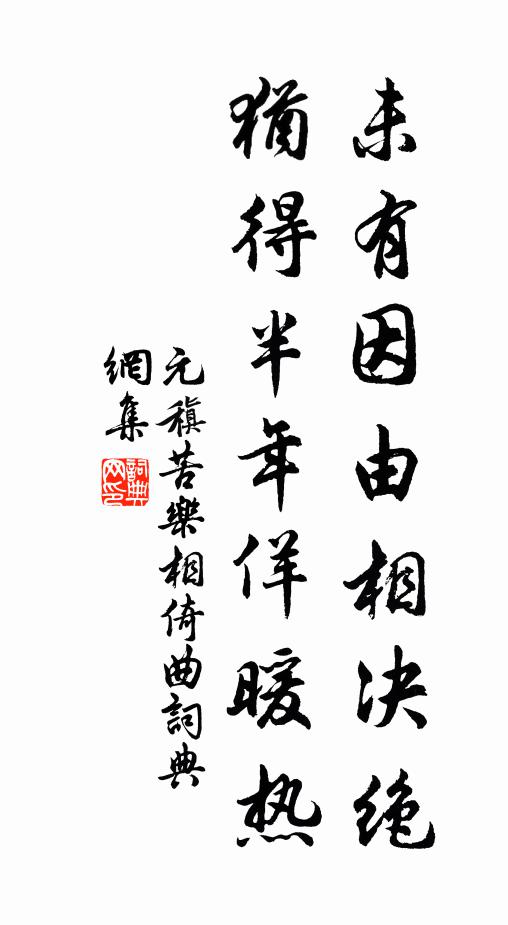 未有因由相决绝
猶得半年佯暖热
元稹苦樂相倚曲詞典
網集
詞典网印